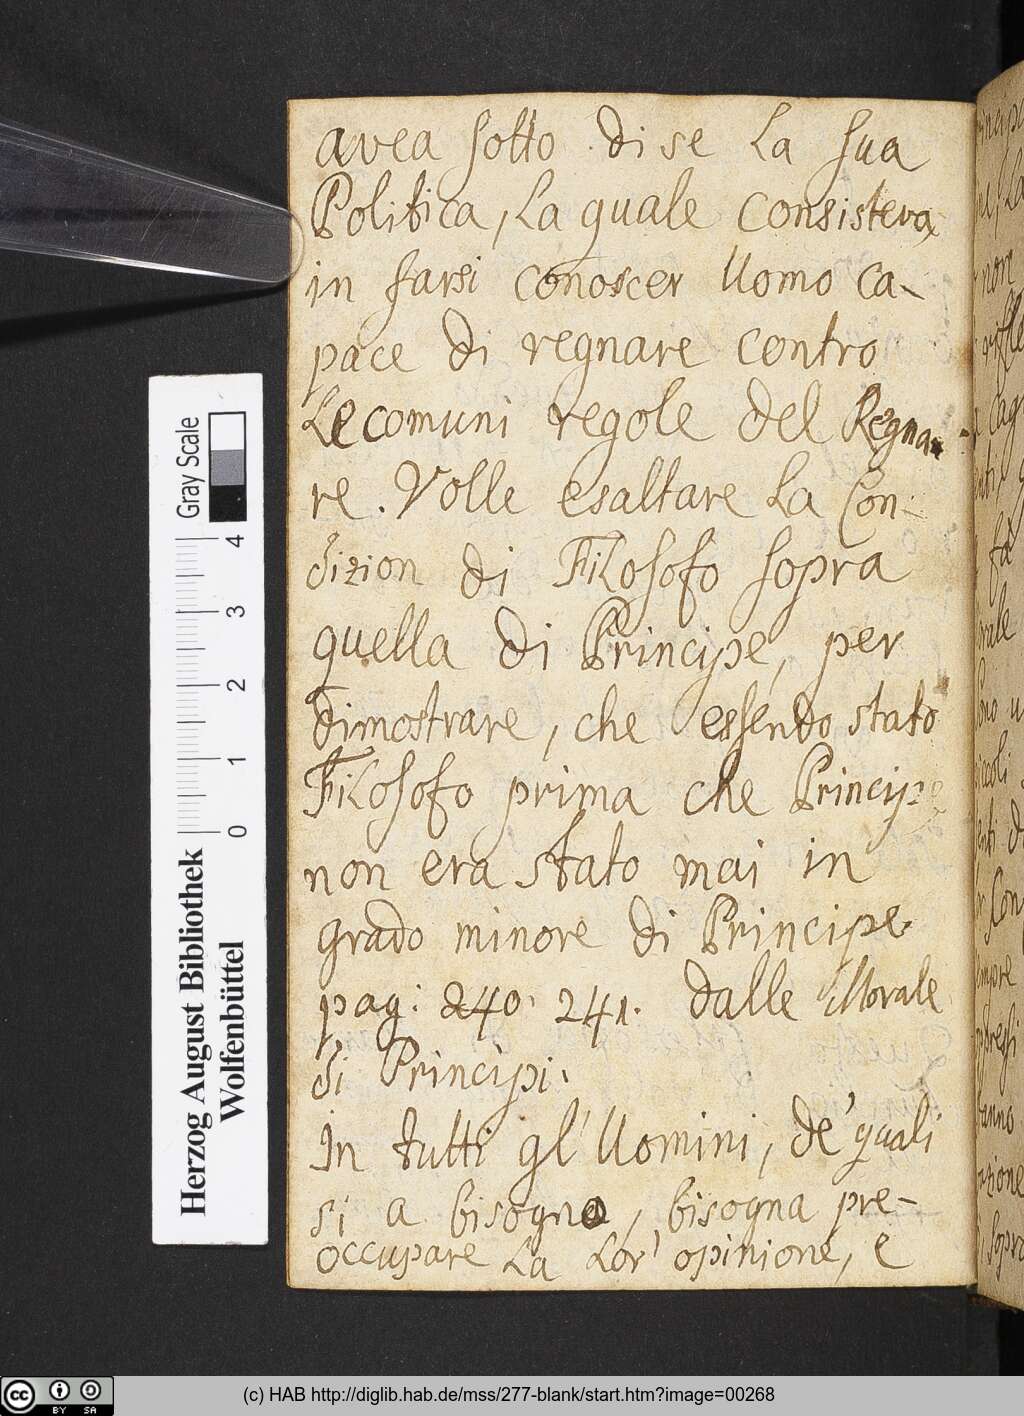 avea sotto di se la sua
Politica, la quale consisteva
in farsi conoscer Uomo ca-
pace di regnare contro
le comuni regole del Regna-
re. Volle esaltare la Con-
dizion di Filosofo sopra
quella di Principe, per
dimostrare, che essendo stato
Filosofo prima che Principe
non era stato mai in
grado minore di Principe.
pag: 240. 241. dalle Morale
di Principi.
In tutti gl' Uomini, de' quali
si a bisogno, bisogna pre-
occupare la lor' opinione, e
Gray Scale
4
3
2
1
0
Herzog August Bibliothek
Wolfenbüttel
cc BY SA
(c) HAB http://diglib.hab.de/mss/277-blank/start.htm?image=00268